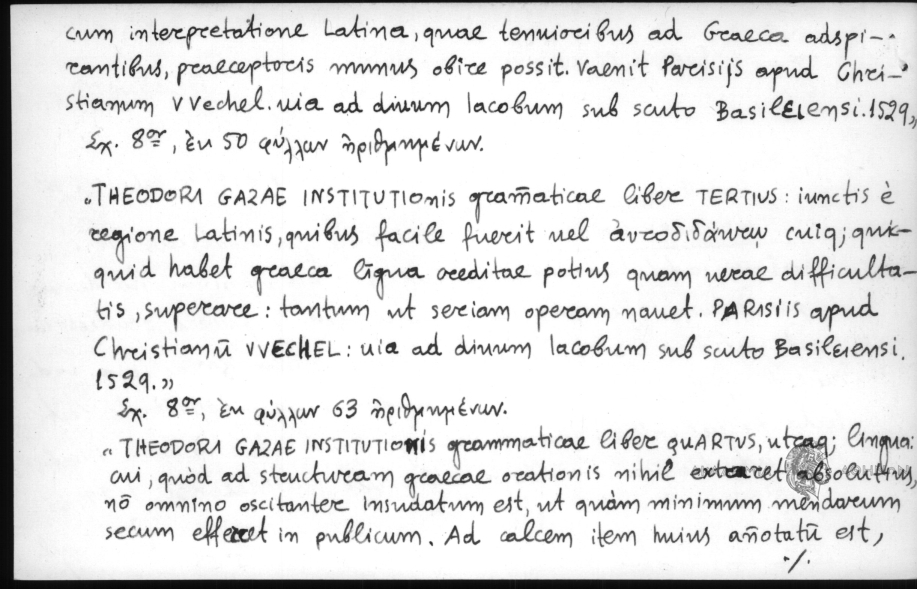 cum interpretatione Latina, quae tenuioribus ad Graeca adspi-
rantibus, praeceptoris munus obire possit. Vaenit Parisijs apud Chri-
stianum VVechel. uia ad diuum Iacobum sub scuto BasilEIensi. 1529,,
Σχ. 8ον, ἐκ 50 φύλλων ἠριθμημένων.
"THEODORI GAZAE INSTITUTIOnis gram̄aticae liber TERTIUS: iunctis è
regione Latinis, quibus facile fuerit uel ἀυτοδιδάκτῳ cuiq; quic-
quid habet graeca līgua creditae potius quam uerae difficulta-
tis, superare: tantum ut seriam operam nauet. PARISiis apud
Christianū VVECHEL: uia ad diuum Iacobum sub scuto Basileiensi.
1529.,,
Σχ. 8ον, ἐκ φύλλων 63 ἠριθμημένων.
"THEODORI GAZAE INSTITUTIONis grammaticae liber QUARTVS, utraq; lingua:
cui, quòd ad structuram graecae orationis nihil extaret absolutius,
nō omnino oscitanter insudatum est, ut quàm minimum mendarum
secum efferret in publicum. Ad calcem item huius an̄otatū est,
./.